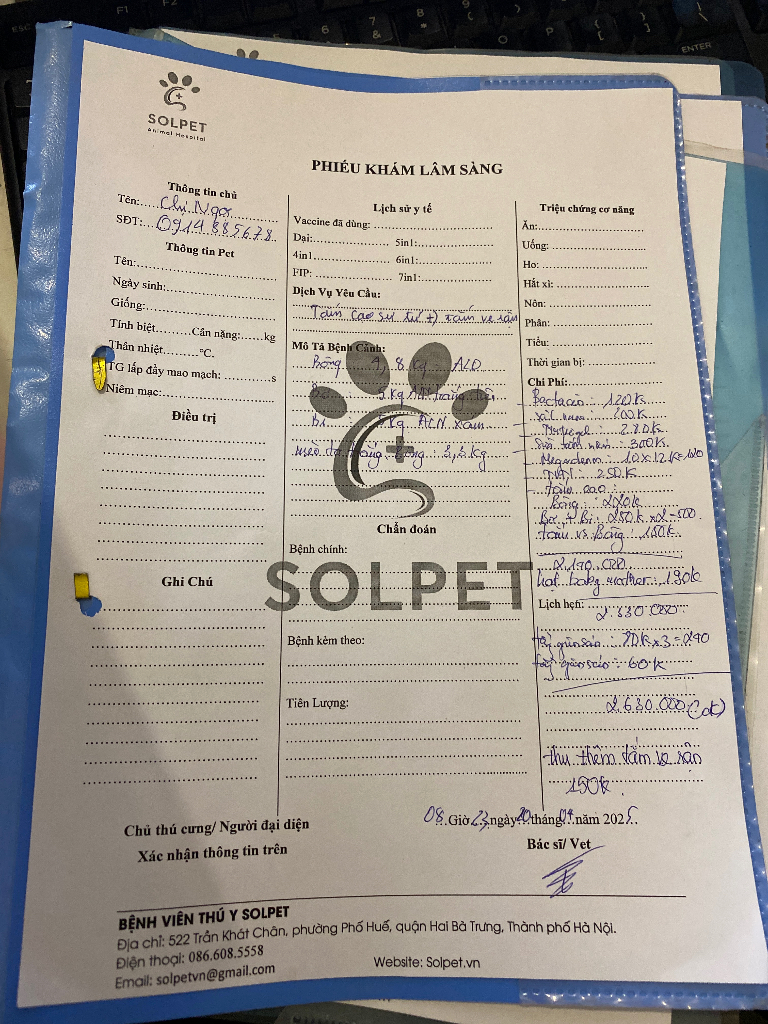 SOLPET
Animal Hospital
PHIẾU KHÁM LÂM SÀNG
Thông tin chủ
Tên: Chị Ngọc
SĐT: 0914885678
Thông tin Pet
Tên:
Ngày sinh:
Giống:
Tính biệt Cân nặng: kg
Thân nhiệt °C.
TG lấp đầy mao mạch: s
Niêm mạc:
Điều trị
Ghi Chú
Lịch sử y tế
Vaccine đã dùng:
Dại: 5in1:
4in1 6in1:
FIP: 7in1:
Dịch Vụ Yêu Cầu:
Tắm cạo sư tử + tắm ve rận
Mô Tả Bệnh Cảnh:
Bông 8 kg ALD
5 kg
Bi kg ALN xám
mèo 3,2 kg
Chẩn đoán
Bệnh chính:
SOLPET
Bệnh kèm theo:
Tiên Lượng:
Triệu chứng cơ năng
Ăn:
Uống:
Ho:
Hắt xì:
Nôn:
Phân:
Tiểu:
Thời gian bị:
Chi Phí:
120K
200K
280K
Sữa tắm 300K
Megaderm: 10 x 12K = 120
250K
tắm cạo:
Bông: 220K
Bơ + Bi: 250K x 2 = 500
tắm vs Bông: 150K
2.190.000
hạt baby mother: 190K
Lịch hẹn: 2.330.000
tẩy giun sán: x3 =
tẩy giun sán: 60K
2.630.000 (ck)
thu thêm tắm ve rận
150k
08 Giờ 23 ngày 20 tháng 04 năm 2025
Chủ thú cưng/ Người đại diện
Xác nhận thông tin trên
Bác sĩ/ Vet
BỆNH VIÊN THÚ Y SOLPET
Địa chỉ: 522 Trần Khát Chân, phường Phố Huế, quận Hai Bà Trưng, Thành phố Hà Nội.
Điện thoại: 086.608.5558
Email: solpetvn@gmail.com Website: Solpet.vn
ENTER